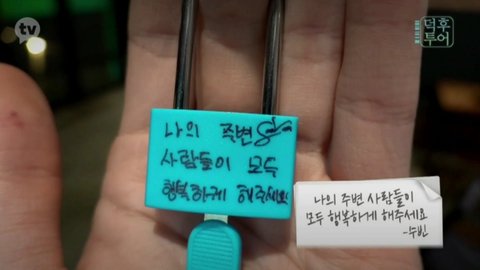 tv
덕후
투어
나의 주변
사람들이 모두
행복하게 해주세요
나의 주변 사람들이
모두 행복하게 해주세요
-수빈